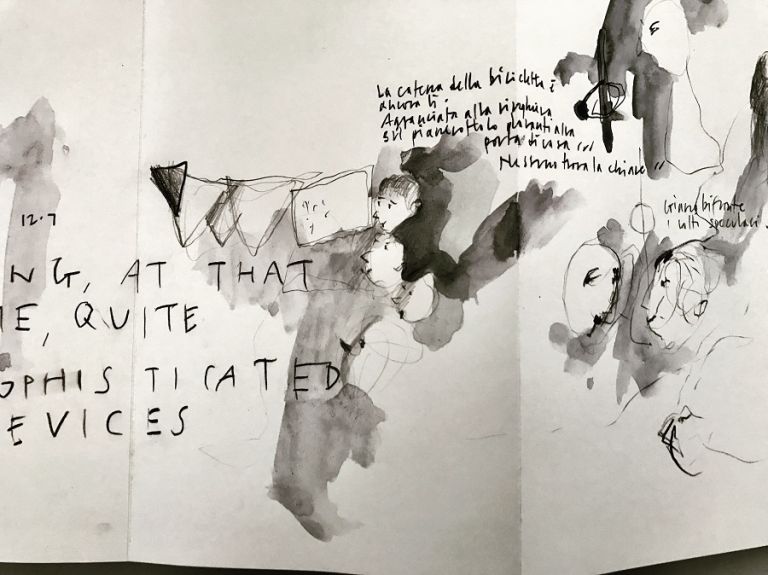 La catena della bicicletta è
ancora lì.
Agganciata alla ringhiera
sul pianerottolo davanti alla
porta di casa
Nessuno trova la chiave
Giano bifronte
i volti speculari.
12.7
NG, AT THAT
E, QUITE
OPHISTICATED
EVICES